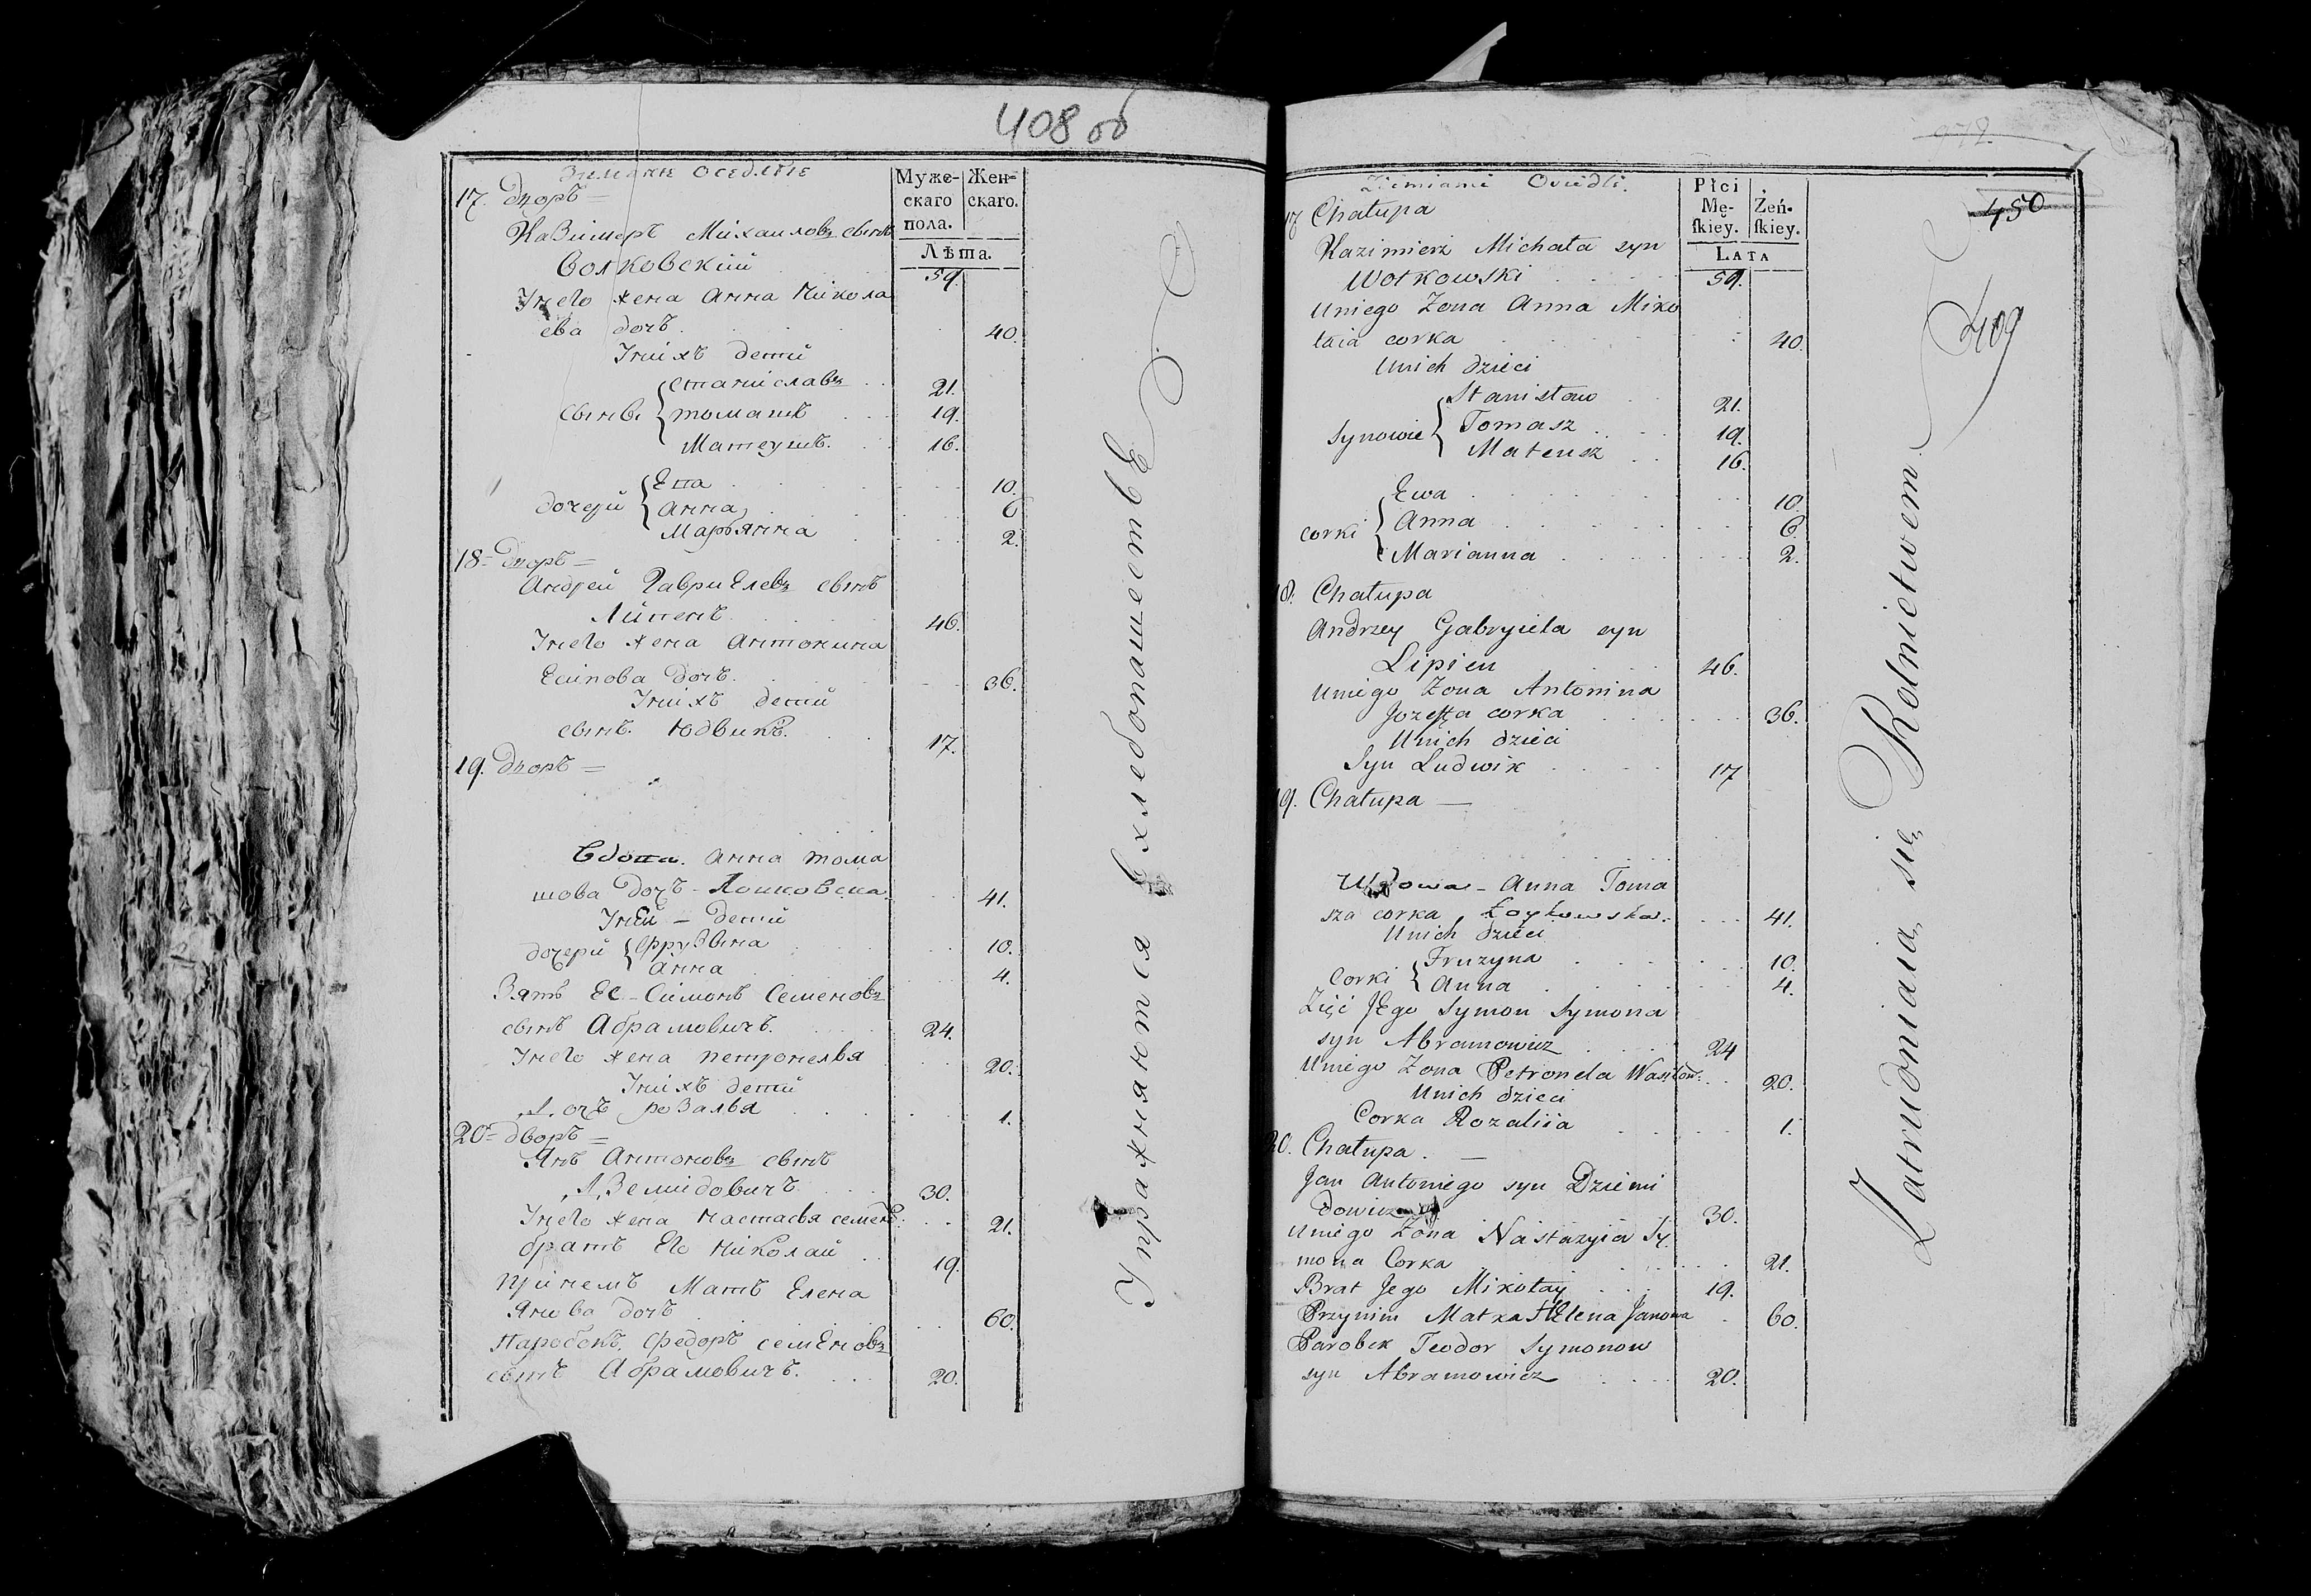 408 об
Зимяне Оседлые
Муже-
скаго
пола.
Жен-
скаго.
Лѣта.
17. Дворъ =
Казимеръ Михаиловъ сынъ
Волковскій 59.
Унего жена Анна Никола
ева дочъ. 40.
Унихъ детей
Станиславъ 21.
сынвъ { томашъ 19.
Матеушъ. 16.
Ева 10.
дочери { Анна 6
Марьянна 2.
18 = Дворъ =
Андрей Гавриелевъ сынъ
Липпенъ 46.
Унего жена Антонина
Есипова дочъ. 36.
Унихъ детей
сынъ Юдвикъ. 17.
19. Дворъ =
Вдова. Анна тома
шова дочъ - Лойковска. 41.
Уней - детей
дочери { Фрузына 10.
Анна 4.
Зять Ее - Симонъ Семеновъ
сынъ Абрамовичъ. 24.
Унего жена петронелья 20.
Унихъ детей
Дочъ розалья 1.
20 = дворъ =
Янъ Антоновъ сынъ
Дземидовичъ 30.
Унего жена Настасья семен: 21.
братъ Его Николай 19.
принемъ Мать Елена
Янова дочъ 60.
Паробокъ Федоръ семеновъ
сынъ Абрамовичъ. 20.
Упражняются вхлебопашествѣ
450
409
Ziemianie Osiedli.
Płci
Mę-
skiey.
Żeń-
skiey.
LATA
17 Chałupa
Kazimierz Michała syn
Wołkowski 59.
Uniego Zona Anna Miko
łaia corka 40.
Unich dzieci
Stanisław 21.
synowie { Tomasz 19.
Mateusz 16.
Ewa 10.
corki { Anna 6.
Marianna 2.
18. Chałupa
Andrzey Gabryiela syn
Lipien 46.
Uniego Zona Antonina
Jozefa corka 36.
Unich dzieci
Syn Ludwik 17
19. Chałupa —
Wdowa - Anna Toma
sza corka Łoykowska. 41.
Unich dzieci
Fruzyna 10.
Corki { Anna 4.
Zięć Jego Symon Symona
syn Abramowicz 24
Uniego Zona Petronela 20.
Unich dzieci
Corka Rozaliia 1.
20. Chałupa. —
Jan Antoniego syn Dziemi
dowicz 30.
Uniego Zona Nastazyia Sy
mona Corka 21.
Brat Jego Mikołay 19.
Przynim Matka Helena Janowa 60.
Parobek Teodor Symonow
syn Abramowicz 20.
Zatrudniaią się Rolnictwem